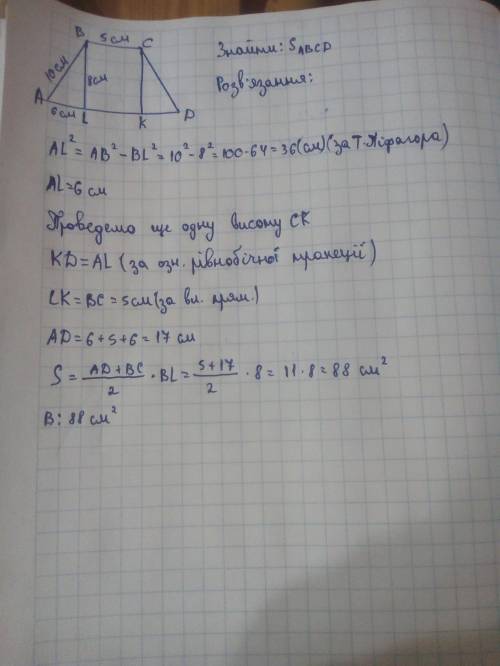 B 5см C
10см 8см
A 6см L K D
Знайти: S ABCD
Розв'язання:
AL² = AB² - BL² = 10² - 8² = 100 - 64 = 36(см) (за Т. Піфагора)
AL = 6 см
Проведемо ще одну висоту CK
KD = AL (за озн. рівнобічної трапеції)
LK = BC = 5см (за вл. прям.)
AD = 6 + 5 + 6 = 17 см
S = AD + BC / 2 · BL = 5 + 17 / 2 · 8 = 11 · 8 = 88 см²
В: 88 см²